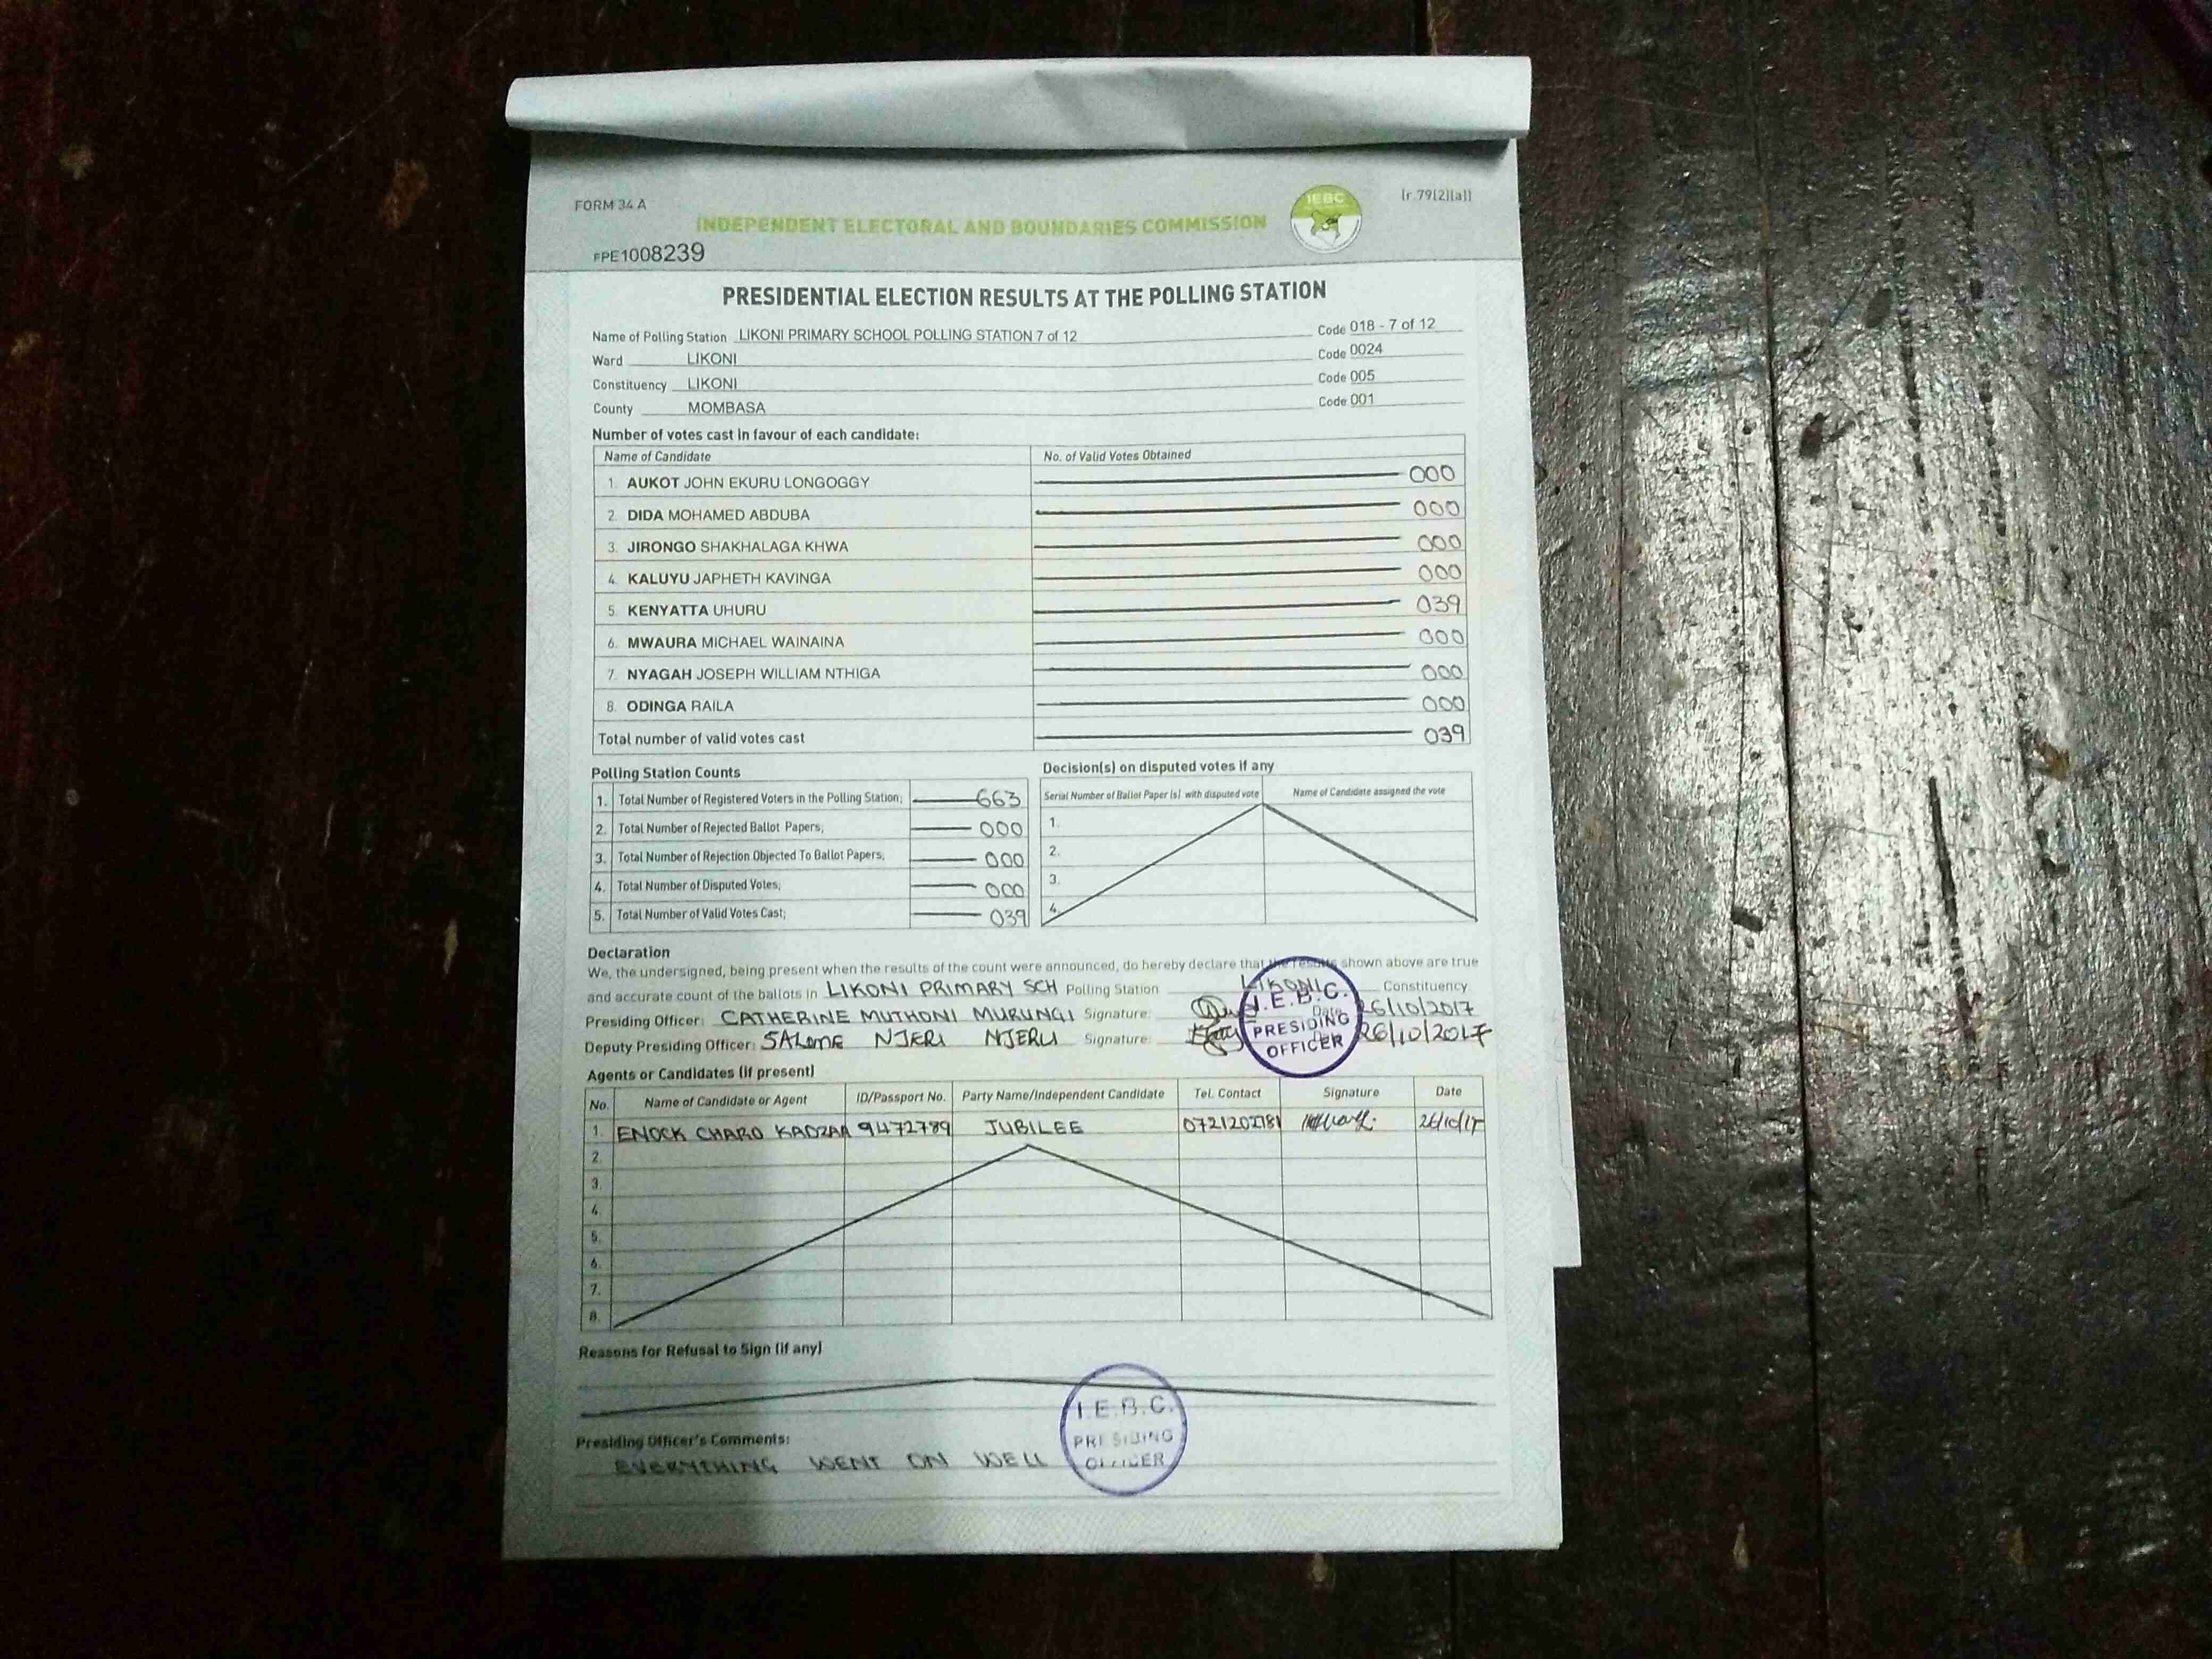 FORM 34 A
[r.79[2][a]]
IEBC
INDEPENDENT ELECTORAL AND BOUNDARIES COMMISSION
FPE1008239
PRESIDENTIAL ELECTION RESULTS AT THE POLLING STATION
Name of Polling Station LIKONI PRIMARY SCHOOL POLLING STATION 7 of 12 Code 018 - 7 of 12
Ward LIKONI Code 0024
Constituency LIKONI Code 005
County MOMBASA Code 001
Number of votes cast in favour of each candidate:
Name of Candidate No. of Valid Votes Obtained
1. AUKOT JOHN EKURU LONGOGGY 000
2. DIDA MOHAMED ABDUBA 000
3. JIRONGO SHAKHALAGA KHWA 000
4. KALUYU JAPHETH KAVINGA 000
5. KENYATTA UHURU 039
6. MWAURA MICHAEL WAINAINA 000
7. NYAGAH JOSEPH WILLIAM NTHIGA 000
8. ODINGA RAILA 000
Total number of valid votes cast 039
Polling Station Counts
1. Total Number of Registered Voters in the Polling Station; 663
2. Total Number of Rejected Ballot Papers; 000
3. Total Number of Rejection Objected To Ballot Papers; 000
4. Total Number of Disputed Votes; 000
5. Total Number of Valid Votes Cast; 039
Decision(s) on disputed votes if any
Serial Number of Ballot Paper (s) with disputed vote Name of Candidate assigned the vote
1.
2.
3.
4.
Declaration
We, the undersigned, being present when the results of the count were announced, do hereby declare that the results shown above are true
and accurate count of the ballots in LIKONI PRIMARY SCH Polling Station LIKONI Constituency
Presiding Officer: CATHERINE MUTHONI MURUNGI Signature: Date 26/10/2017
Deputy Presiding Officer: SALOME NJERI NJERU Signature: 26/10/2017
I.E.B.C.
PRESIDING
OFFICER
Agents or Candidates (if present)
No. Name of Candidate or Agent ID/Passport No. Party Name/Independent Candidate Tel. Contact Signature Date
1. ENOCK CHARO 9472789 JUBILEE 26/10/17
2.
3.
4.
5.
6.
7.
8.
Reasons for Refusal to Sign (if any)
Presiding Officer's Comments:
EVERYTHING WENT ON WELL
I.E.B.C.
PRESIDING
OFFICER